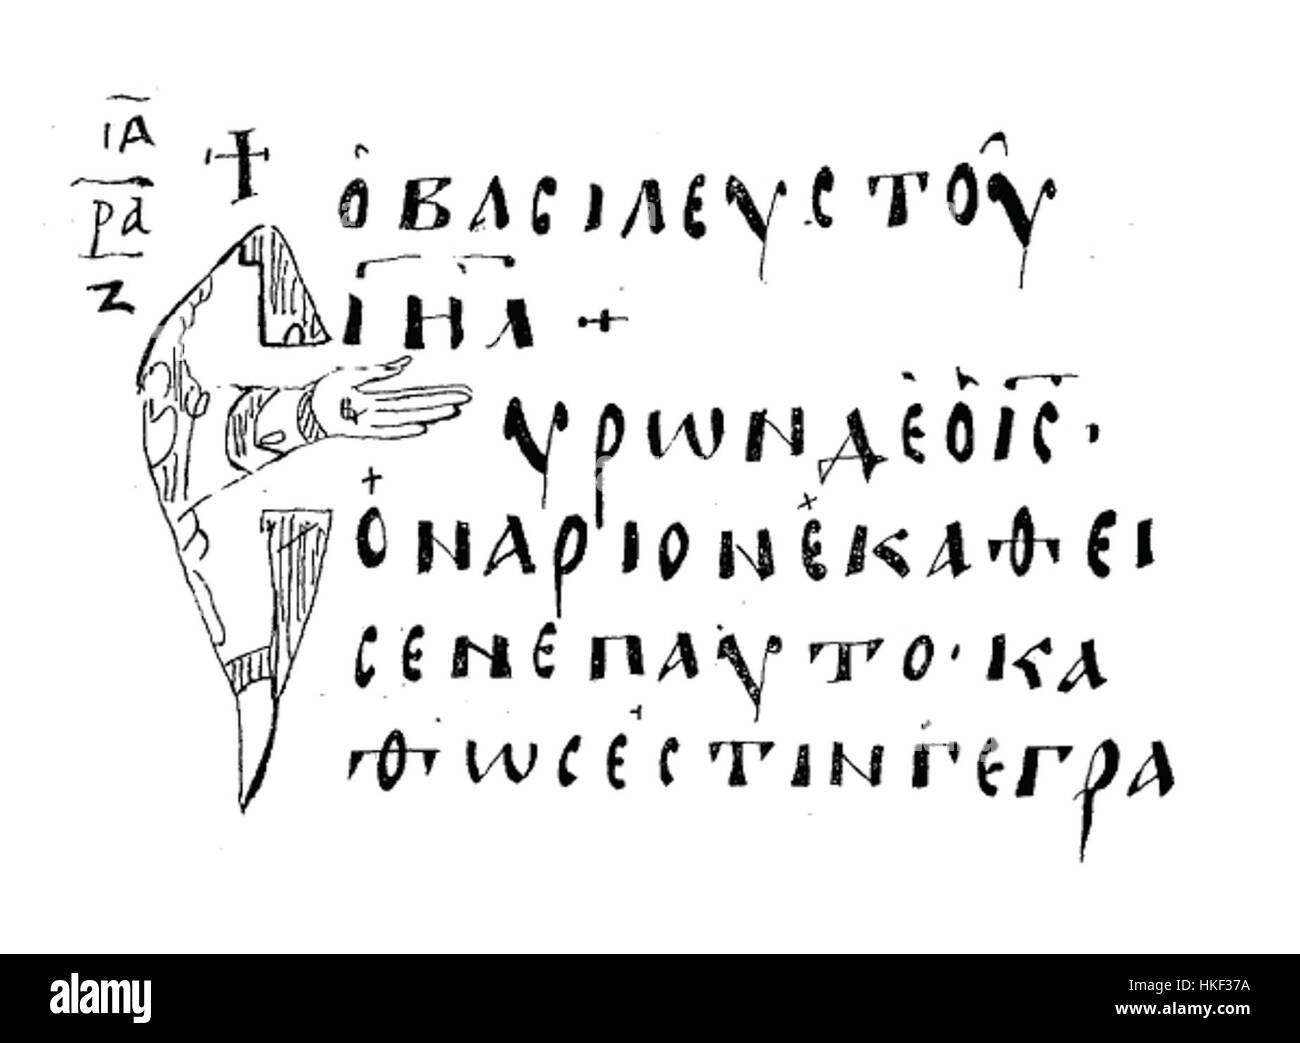 ΙΑ
ΡΔ
Ζ
+ ὁ ΒΑCΙΛΕΥC ΤΟΥ͂
ΙΗΛ +
ΥΡΩΝ ΔΕ Ὁ ΙC ·
ὈΝΑΡΙΟΝ ἘΚΑΘΕΙ
CΕΝ ΕΠ ΑΥΤΟ · ΚΑ
ΘΩC ἘCΤΙΝ ΓΕΓΡΑ
alamy stock photo
HKF37A
www.alamy.com